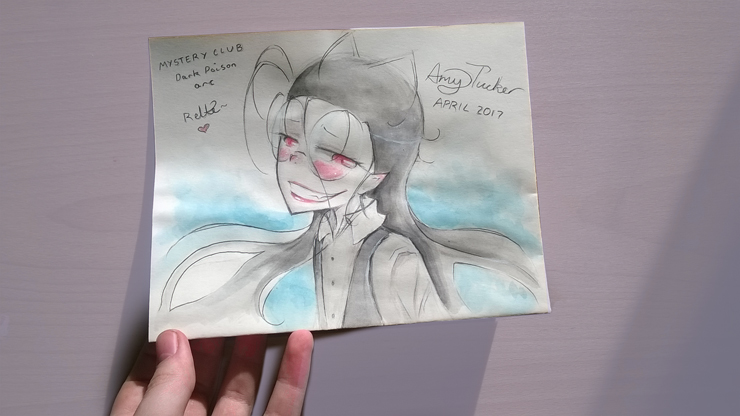 MYSTERY CLUB
Dark Poison
are
Amy Tucker
APRIL 2017